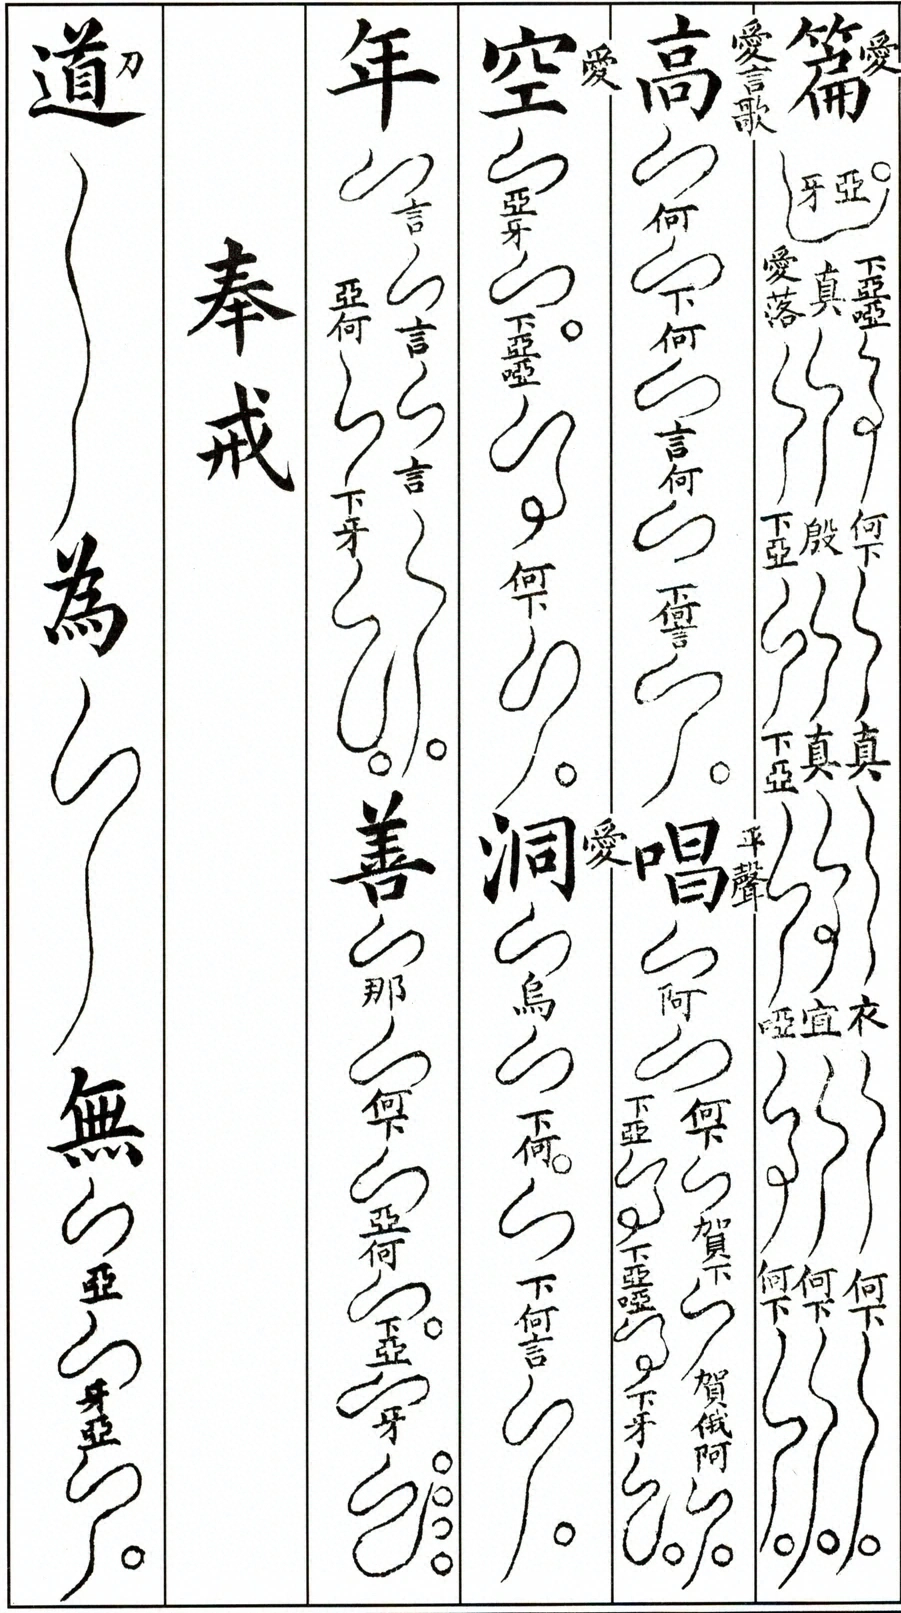 篇 愛
亞牙
下亞啞 何下 真 衣 何下
真 殷 真 宜 何下
愛落 下亞 下亞 啞 何下
高 愛言歌 何 下何 言何 下何言
唱 平聲 阿
何下 賀下 賀俄阿
下亞 下亞啞 下牙
空 愛 亞牙 下亞啞 何下
洞 愛 烏 下何 下何言
年
言 言 言
亞何 下牙
善 那 何下 亞何 下亞 牙
奉戒
道 刀 為 無 亞 牙亞